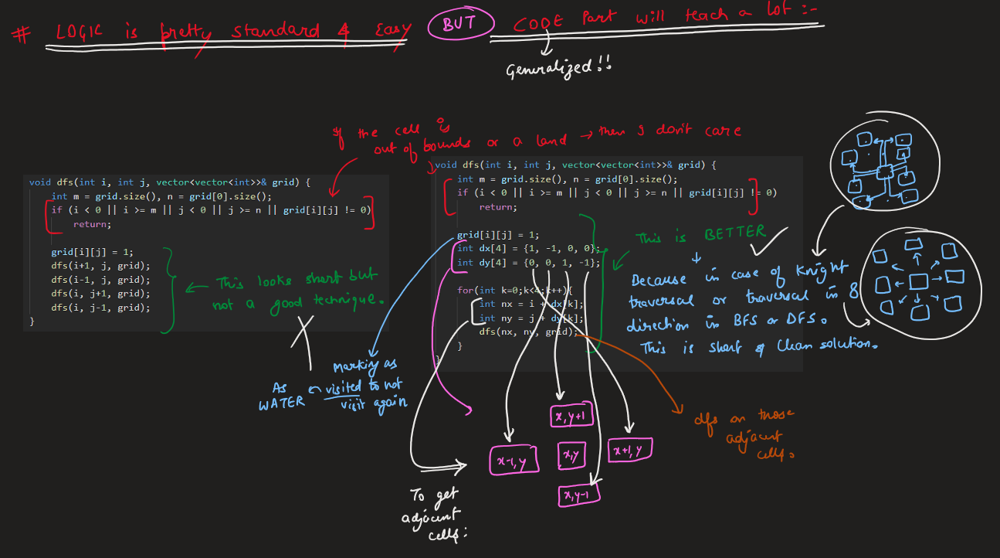 # LOGIC is pretty standard & Easy BUT CODE Part will teach a lot :-
Generalized!!
If the cell is
out of bounds or a land → then I don't care
void dfs(int i, int j, vector<vector<int>>& grid) {
int m = grid.size(), n = grid[0].size();
if (i < 0 || i >= m || j < 0 || j >= n || grid[i][j] != 0)
return;
grid[i][j] = 1;
dfs(i+1, j, grid);
dfs(i-1, j, grid);
dfs(i, j+1, grid);
dfs(i, j-1, grid);
}
This looks short but
not a good technique.
void dfs(int i, int j, vector<vector<int>>& grid) {
int m = grid.size(), n = grid[0].size();
if (i < 0 || i >= m || j < 0 || j >= n || grid[i][j] != 0)
return;
grid[i][j] = 1;
int dx[4] = {1, -1, 0, 0};
int dy[4] = {0, 0, 1, -1};
for(int k=0;k<4;k++){
int nx = i + dx[k];
int ny = j + dy[k];
dfs(nx, ny, grid);
}
}
This is BETTER
Because in case of Knight
traversal or traversal in 8
direction in BFS or DFS.
This is short & Clean solution.
Marking as
As visited to not
WATER visit again
x,y+1
x-1,y
x,y
x+1,y
x,y-1
dfs on those
adjacent
cells.
To get
adjacent
cells: